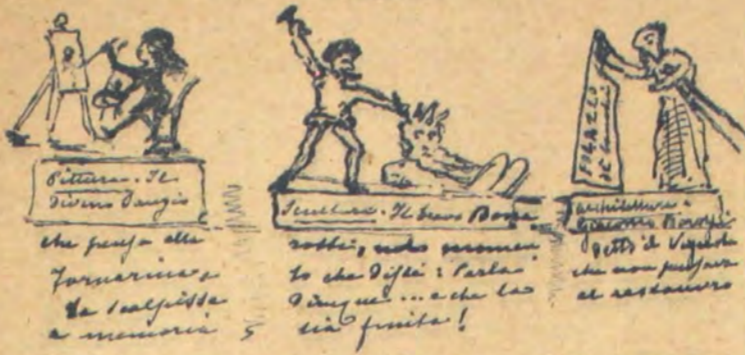 Pittura. Il
divino
che pensa alla
Fornarina,
la scalpissa
a memoria
Scultura. Il bravo Buona
rotti, nel momen
to che disse: Parla
Dunque... e che la
sia finita!
PALAZZO
architettura.
Giacomo Barozzi
detto il Vignola
che non pensava
al restauro